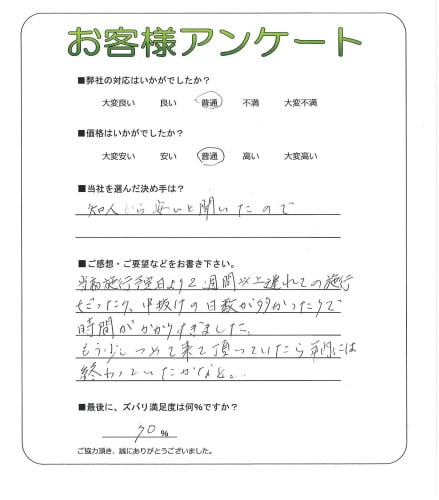 お客様アンケート
■弊社の対応はいかがでしたか？
大変良い 良い 普通 不満 大変不満
■価格はいかがでしたか？
大変安い 安い 普通 高い 大変高い
■当社を選んだ決め手は？
知人から安いと聞いたので
■ご感想・ご要望などをお書き下さい。
当初施行予定日より2週間以上遅れての施行
だったり、中抜けの日数が多かったりで
時間がかかりすぎました。
もう少しつめて来て頂っていたら 内には
終わっていたかなと。
■最後に、ズバリ満足度は何％ですか？
70 %
ご協力頂き、誠にありがとうございました。